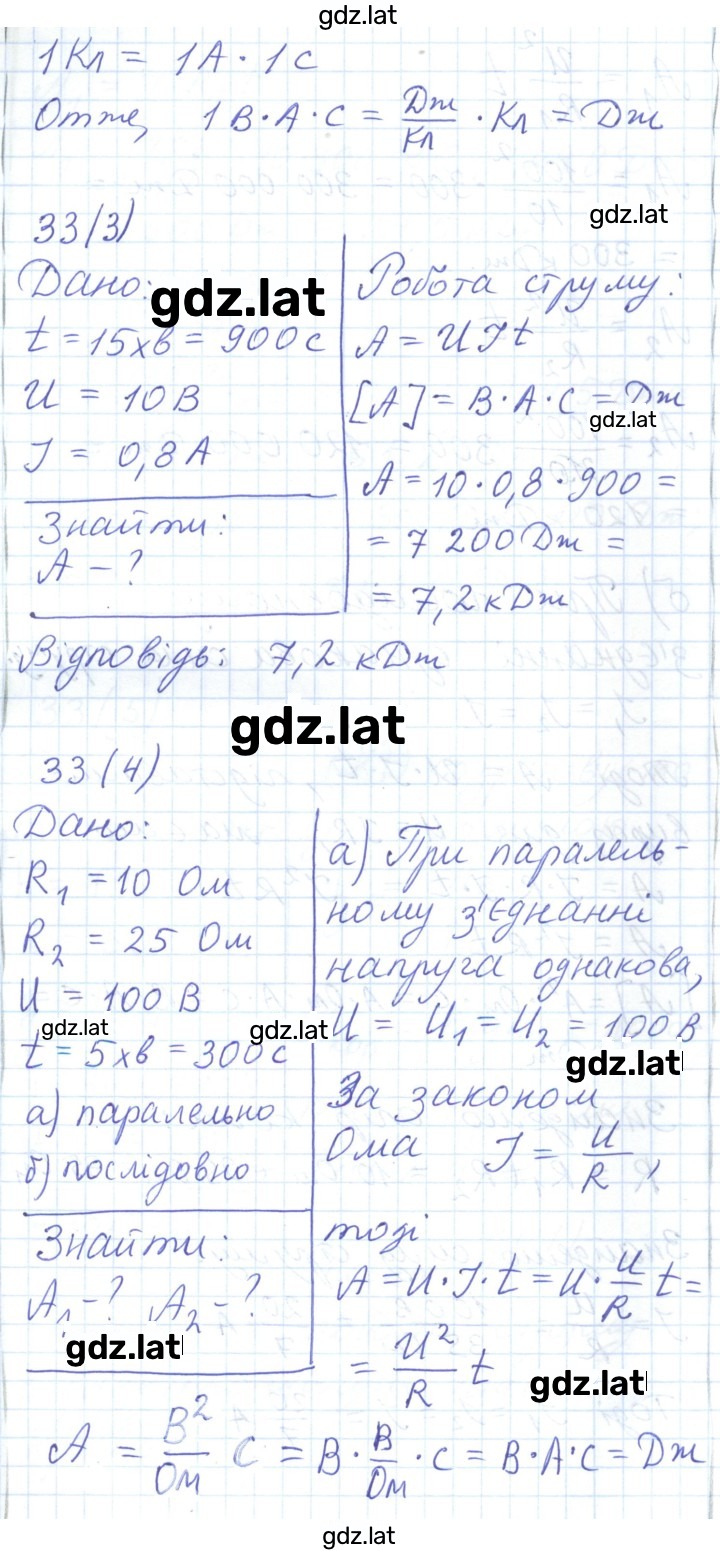 gdz.lat
1 Кл = 1 А · 1 с
Отже, 1 В·А·с = Дж/Кл · Кл = Дж
33(3)
gdz.lat
Дано:
gdz.lat
t = 15хв = 900 с
U = 10 В
I = 0,8 А
Знайти:
A – ?
Робота струму:
A = UIt
[A] = В·А·с = Дж
gdz.lat
A = 10·0,8·900 =
= 7 200 Дж =
= 7,2 кДж
Відповідь: 7,2 кДж
gdz.lat
33 (4)
Дано:
R₁ = 10 Ом
R₂ = 25 Ом
U = 100 В
gdz.lat
t = 5хв = 300 с
а) паралельно
б) послідовно
Знайти:
A₁ – ? A₂ – ?
gdz.lat
а) При паралель-
ному з'єднанні
напруга однакова,
gdz.lat
U = U₁ = U₂ = 100 В
gdz.lat
За законом
Ома I = U/R,
тоді
A = U·I·t = U·U/R t =
= U²/R t
gdz.lat
A = В²/Ом с = В · В/Ом · с = В·А·с = Дж
gdz.lat